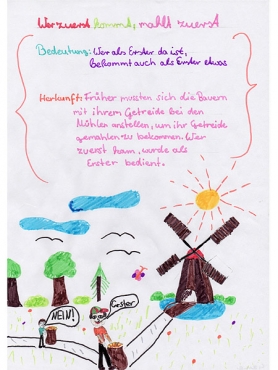 Wer zuerst kommt, mahlt zuerst
Bedeutung: Wer als Erster da ist,
bekommt auch als Erster etwas
Herkunft: Früher mussten sich die Bauern
mit ihrem Getreide bei den
Mühlen anstellen, um ihr Getreide
gemahlen zu bekommen. Wer
zuerst kam, wurde als
Erster bedient.
Erster
NEIN!